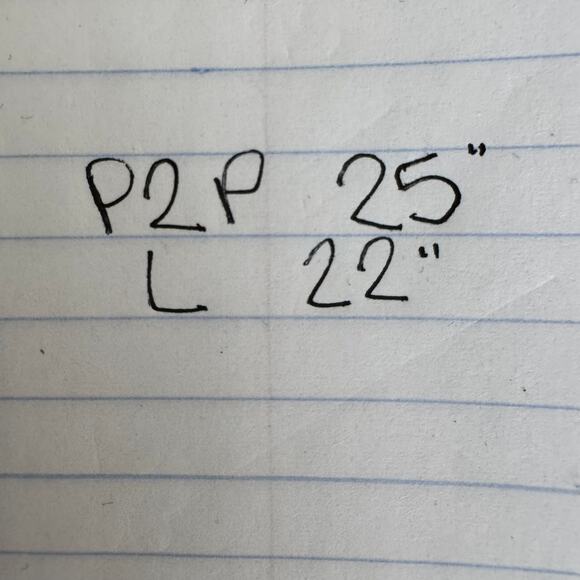 P2P 25"
L 22"